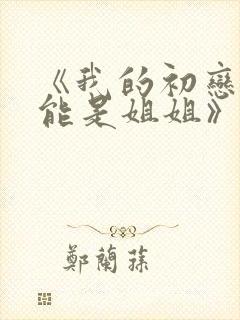 《我的初戀
能是姐姐》
鄭蘭蓀